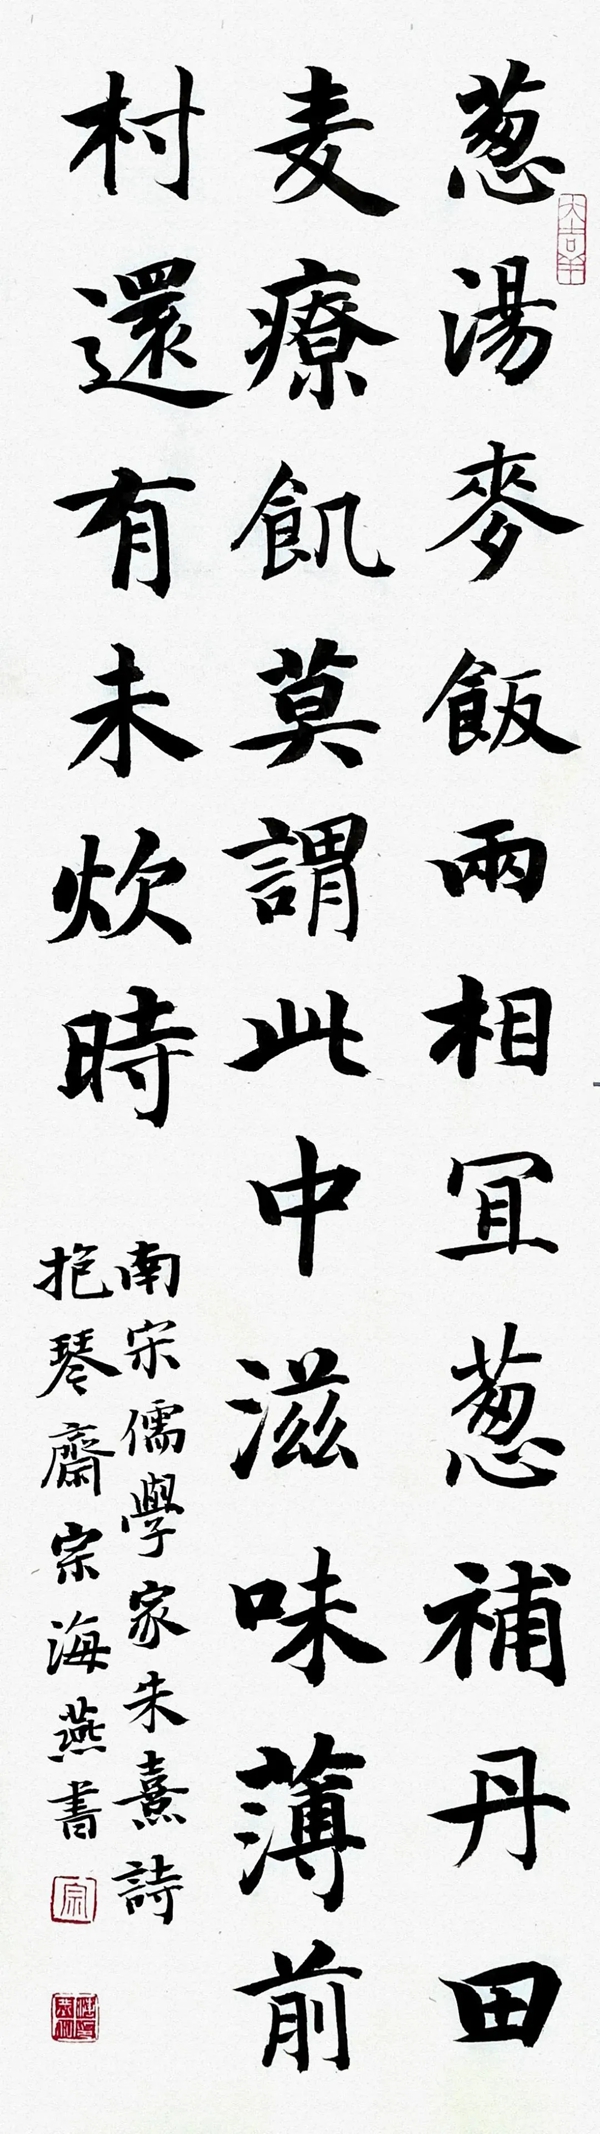 葱湯麥飯兩相宜葱補丹田
麦療飢莫謂此中滋味薄前
村還有未炊時
南宋儒學家朱熹詩
抱琴齋宗海燕書
大吉羊
宗